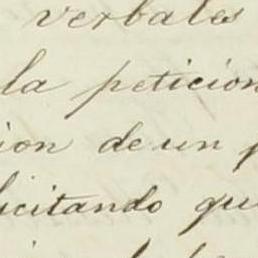 verbales
la peticion
ion de un p
licitando qu